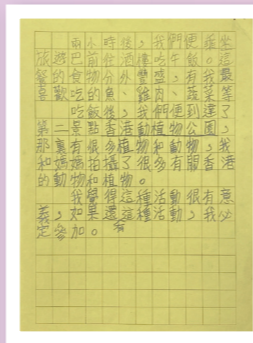 兩小時後，我們便乘坐
旅遊巴前往吃午飯。這
餐的食物分外豐盛，有我最
喜歡吃的魚、雞肉、蔬菜等
吃飯後，我們便到達了
第二景點香港動植物公園，
那裏有很多植物和動物，我
和媽媽拍攝了很多有關香港
的動物和植物。
我覺得這種活動很有意
義，如果還有這種活動，我必
定參加。